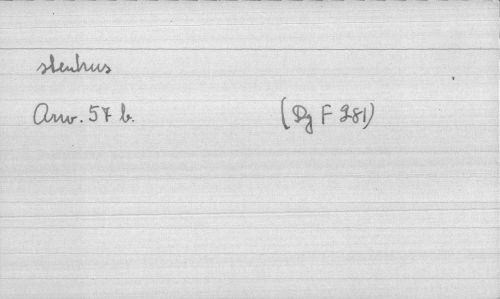 stenhus
Arw. 57 b. (Dg F 281)